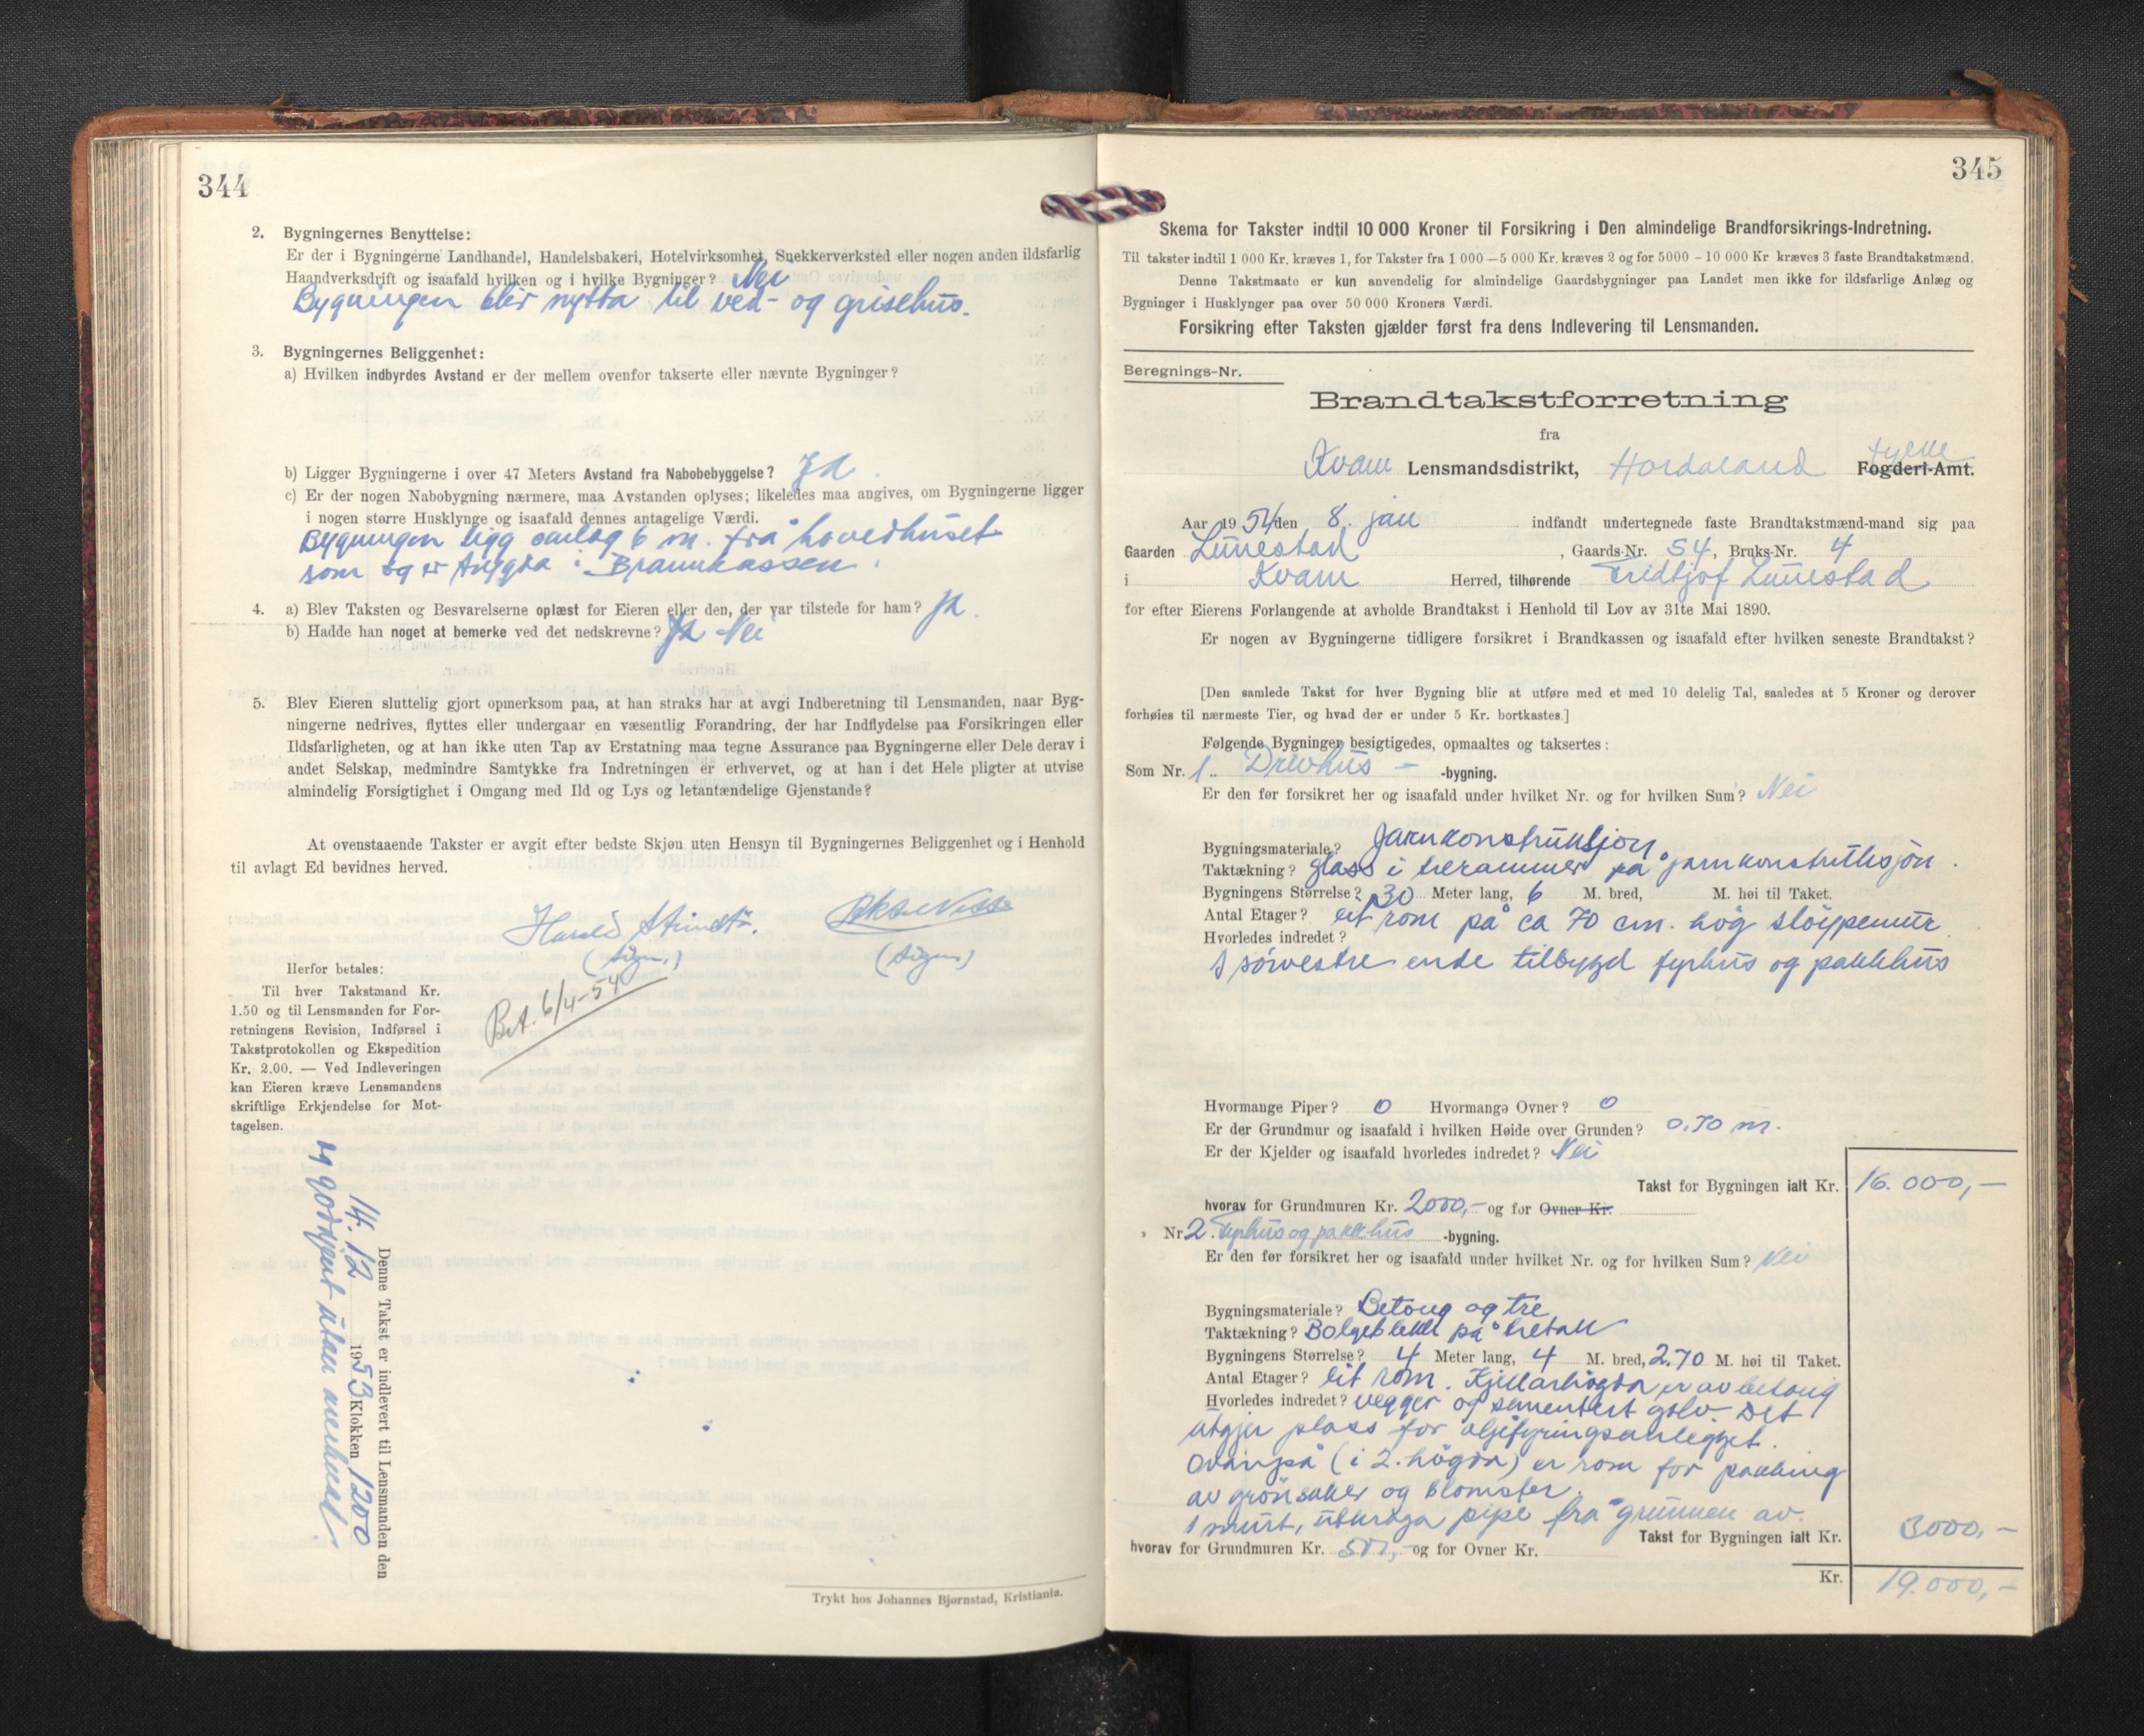 344
2. Bygningernes Benyttelse:
Er der i Bygningerne Landhandel, Handelsbakeri, Hotelvirksomhet, Snekkerverksted eller nogen anden ildsfarlig
Haandverksdrift og isaafald hvilken og i hvilke Bygninger? Nei
Bygningen blir nytta til ved- og grisehus.
3. Bygningernes Beliggenhet:
a) Hvilken indbyrdes Avstand er der mellem ovenfor takserte eller nævnte Bygninger?
b) Ligger Bygningerne i over 47 Meters Avstand fra Nabobebyggelse? Ja.
c) Er der nogen Nabobygning nærmere, maa Avstanden oplyses; likeledes maa angives, om Bygningerne ligger
i nogen større Husklynge og isaafald dennes antagelige Værdi.
Bygningen ligg omlag 6 m. frå hovedhuset
som og er trygda i Brannkassen.
4. a) Blev Taksten og Besvarelserne oplæst for Eieren eller den, der var tilstede for ham? Ja.
b) Hadde han noget at bemerke ved det nedskrevne? Ja Nei
5. Blev Eieren sluttelig gjort opmerksom paa, at han straks har at avgi Indberetning til Lensmanden, naar Byg-
ningerne nedrives, flyttes eller undergaar en væsentlig Forandring, der har Indflydelse paa Forsikringen eller
Ildsfarligheten, og at han ikke uten Tap av Erstatning maa tegne Assurance paa Bygningerne eller Dele derav i
andet Selskap, medmindre Samtykke fra Indretningen er erhvervet, og at han i det Hele pligter at utvise
almindelig Forsigtighet i Omgang med Ild og Lys og letantændelige Gjenstande?
At ovenstaaende Takster er avgit efter bedste Skjøn uten Hensyn til Bygningernes Beliggenhet og i Henhold
til avlagt Ed bevidnes herved.
Harald
(sign.) (sign)
Bet. 6/4-54
Herfor betales:
Til hver Takstmand Kr.
1.50 og til Lensmanden for For-
retningens Revision, Indførsel i
Takstprotokollen og Ekspedition
Kr. 2.00. — Ved Indleveringen
kan Eieren kræve Lensmandens
skriftlige Erkjendelse for Mot-
tagelsen.
Denne Takst er indlevert til Lensmanden den
14. 12 1953 Klokken 1200
og godkjent utan merknad
Trykt hos Johannes Bjørnstad, Kristiania.
345
Skema for Takster indtil 10 000 Kroner til Forsikring i Den almindelige Brandforsikrings-Indretning.
Til takster indtil 1 000 Kr. kræves 1, for Takster fra 1 000 — 5 000 Kr. kræves 2 og for 5000 – 10 000 Kr kræves 3 faste Brandtakstmænd.
Denne Takstmaate er kun anvendelig for almindelige Gaardsbygninger paa Landet men ikke for ildsfarlige Anlæg og
Bygninger i Husklynger paa over 50 000 Kroners Værdi.
Forsikring efter Taksten gjælder først fra dens Indlevering til Lensmanden.
Beregnings-Nr.
Brandtakstforretning
fra
Kvam Lensmandsdistrikt, Hordaland fylke Fogderi-Amt.
Aar 1954 den 8. jan indfandt undertegnede faste Brandtakstmænd-mand sig paa
Gaarden Lunestad, Gaards-Nr. 54, Bruks-Nr. 4
i Kvam Herred, tilhørende Fridtjof Lunestad
for efter Eierens Forlangende at avholde Brandtakst i Henhold til Lov av 31te Mai 1890.
Er nogen av Bygningerne tidligere forsikret i Brandkassen og isaafald efter hvilken seneste Brandtakst?
[Den samlede Takst for hver Bygning blir at utføre med et med 10 delelig Tal, saaledes at 5 Kroner og derover
forhøies til nærmeste Tier, og hvad der er under 5 Kr. bortkastes.]
Følgende Bygninger besigtigedes, opmaaltes og taksertes:
Som Nr. 1. Drivhus – -bygning.
Er den før forsikret her og isaafald under hvilket Nr. og for hvilken Sum? Nei
Bygningsmateriale? Jarnkonstruksjon
Taktækning? glass i trerammer på jarnkonstruksjon.
Bygningens Størrelse? 30 Meter lang, 6 M. bred, M. høi til Taket.
Antal Etager? eit rom på ca 70 cm. høg støypemur
Hvorledes indredet?
I sørvestre ende tilbygd fyrhus og pakkhus
Hvormange Piper? 0 Hvormange Ovner? 0
Er der Grundmur og isaafald i hvilken Høide over Grunden? 0.70 m.
Er der Kjelder og isaafald hvorledes indredet? Nei
Takst for Bygningen ialt Kr. 16.000,—
hvorav for Grundmuren Kr. 2000,- og for Ovner Kr.
» Nr 2. Fyrhus og pakkhus -bygning.
Er den før forsikret her og isaafald under hvilket Nr. og for hvilken Sum? Nei
Bygningsmateriale? Betong og tre
Taktækning? Bølgeblekk på tretak
Bygningens Størrelse? 4 Meter lang, 4 M. bred, 2.70 M. høi til Taket.
Antal Etager? Eit rom. Kjellarhøgda er av betong
Hvorledes indredet? vegger og sementert golv. Det
utgjer plass for oljefyringsanlegget.
Ovanpå (i 2. høgda) er rom for pakking
av grønsaker og blomster.
1 murt, utkraga pipe frå grunnen av.
Takst for Bygningen ialt Kr. 3000,—
hvorav for Grundmuren Kr. 500,- og for Ovner Kr.
Kr. 19.000,—